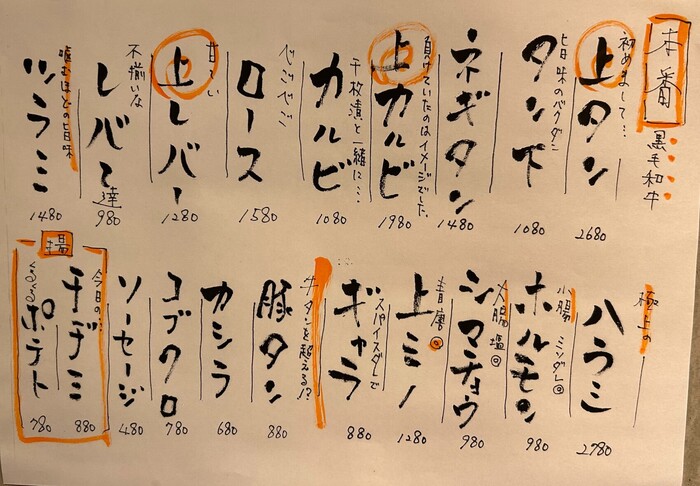 本番
黒毛和牛
初めまして…
上タン
2680
旨味のバクダン
タン下
1080
ネギタン
1480
負けていたのはイメージでした。
上カルビ
1980
千枚漬と一緒に…
カルビ
1080
でこでこ
ロース
1580
甘〜い
上レバー
1280
不揃いな
レバー達
980
噛むほどの旨味
ツラミ
1480
極上の
ハラミ
2780
小腸 ミソダレ◎
ホルモン
980
大腸 塩◎
シマチョウ
980
青唐◎
上ミノ
1280
スパイスダレで
ギャラ
880
牛タンを超える!?
豚タン
880
カシラ
680
コブクロ
780
ソーセージ
480
揚
今日の…
チヂミ
880
ポテト
780